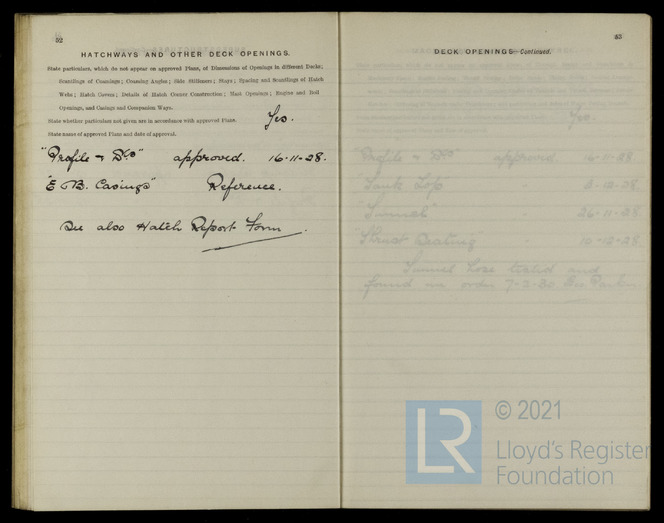 52
HATCHWAYS AND OTHER DECK OPENINGS.
State particulars, which do not appear on approved Plans, of Dimensions of Openings in different Decks;
Scantlings of Coamings; Coaming Angles; Side Stiffeners; Stays; Spacing and Scantlings of Hatch
Webs; Hatch Covers; Details of Hatch Corner Construction; Mast Openings; Engine and Boiler
Openings, and Casings and Companion Ways.
State whether particulars not given are in accordance with approved Plans. Yes.
State name of approved Plans and date of approval.
"Profile & Dks" approved. 16-11-28.
"E & B. Casings" Reference.
See also Hatch Report Form.
53
DECK OPENINGS—Continued.
Yes.
"Profile & Dks" approved 16-11-28
"Tank Top" "
"Tunnel" " 26-11-28
"Thrust Seating" " 10-12-28
Tunnel hose tested and
found in order 7-3-30.
LR
© 2021
Lloyd's Register
Foundation